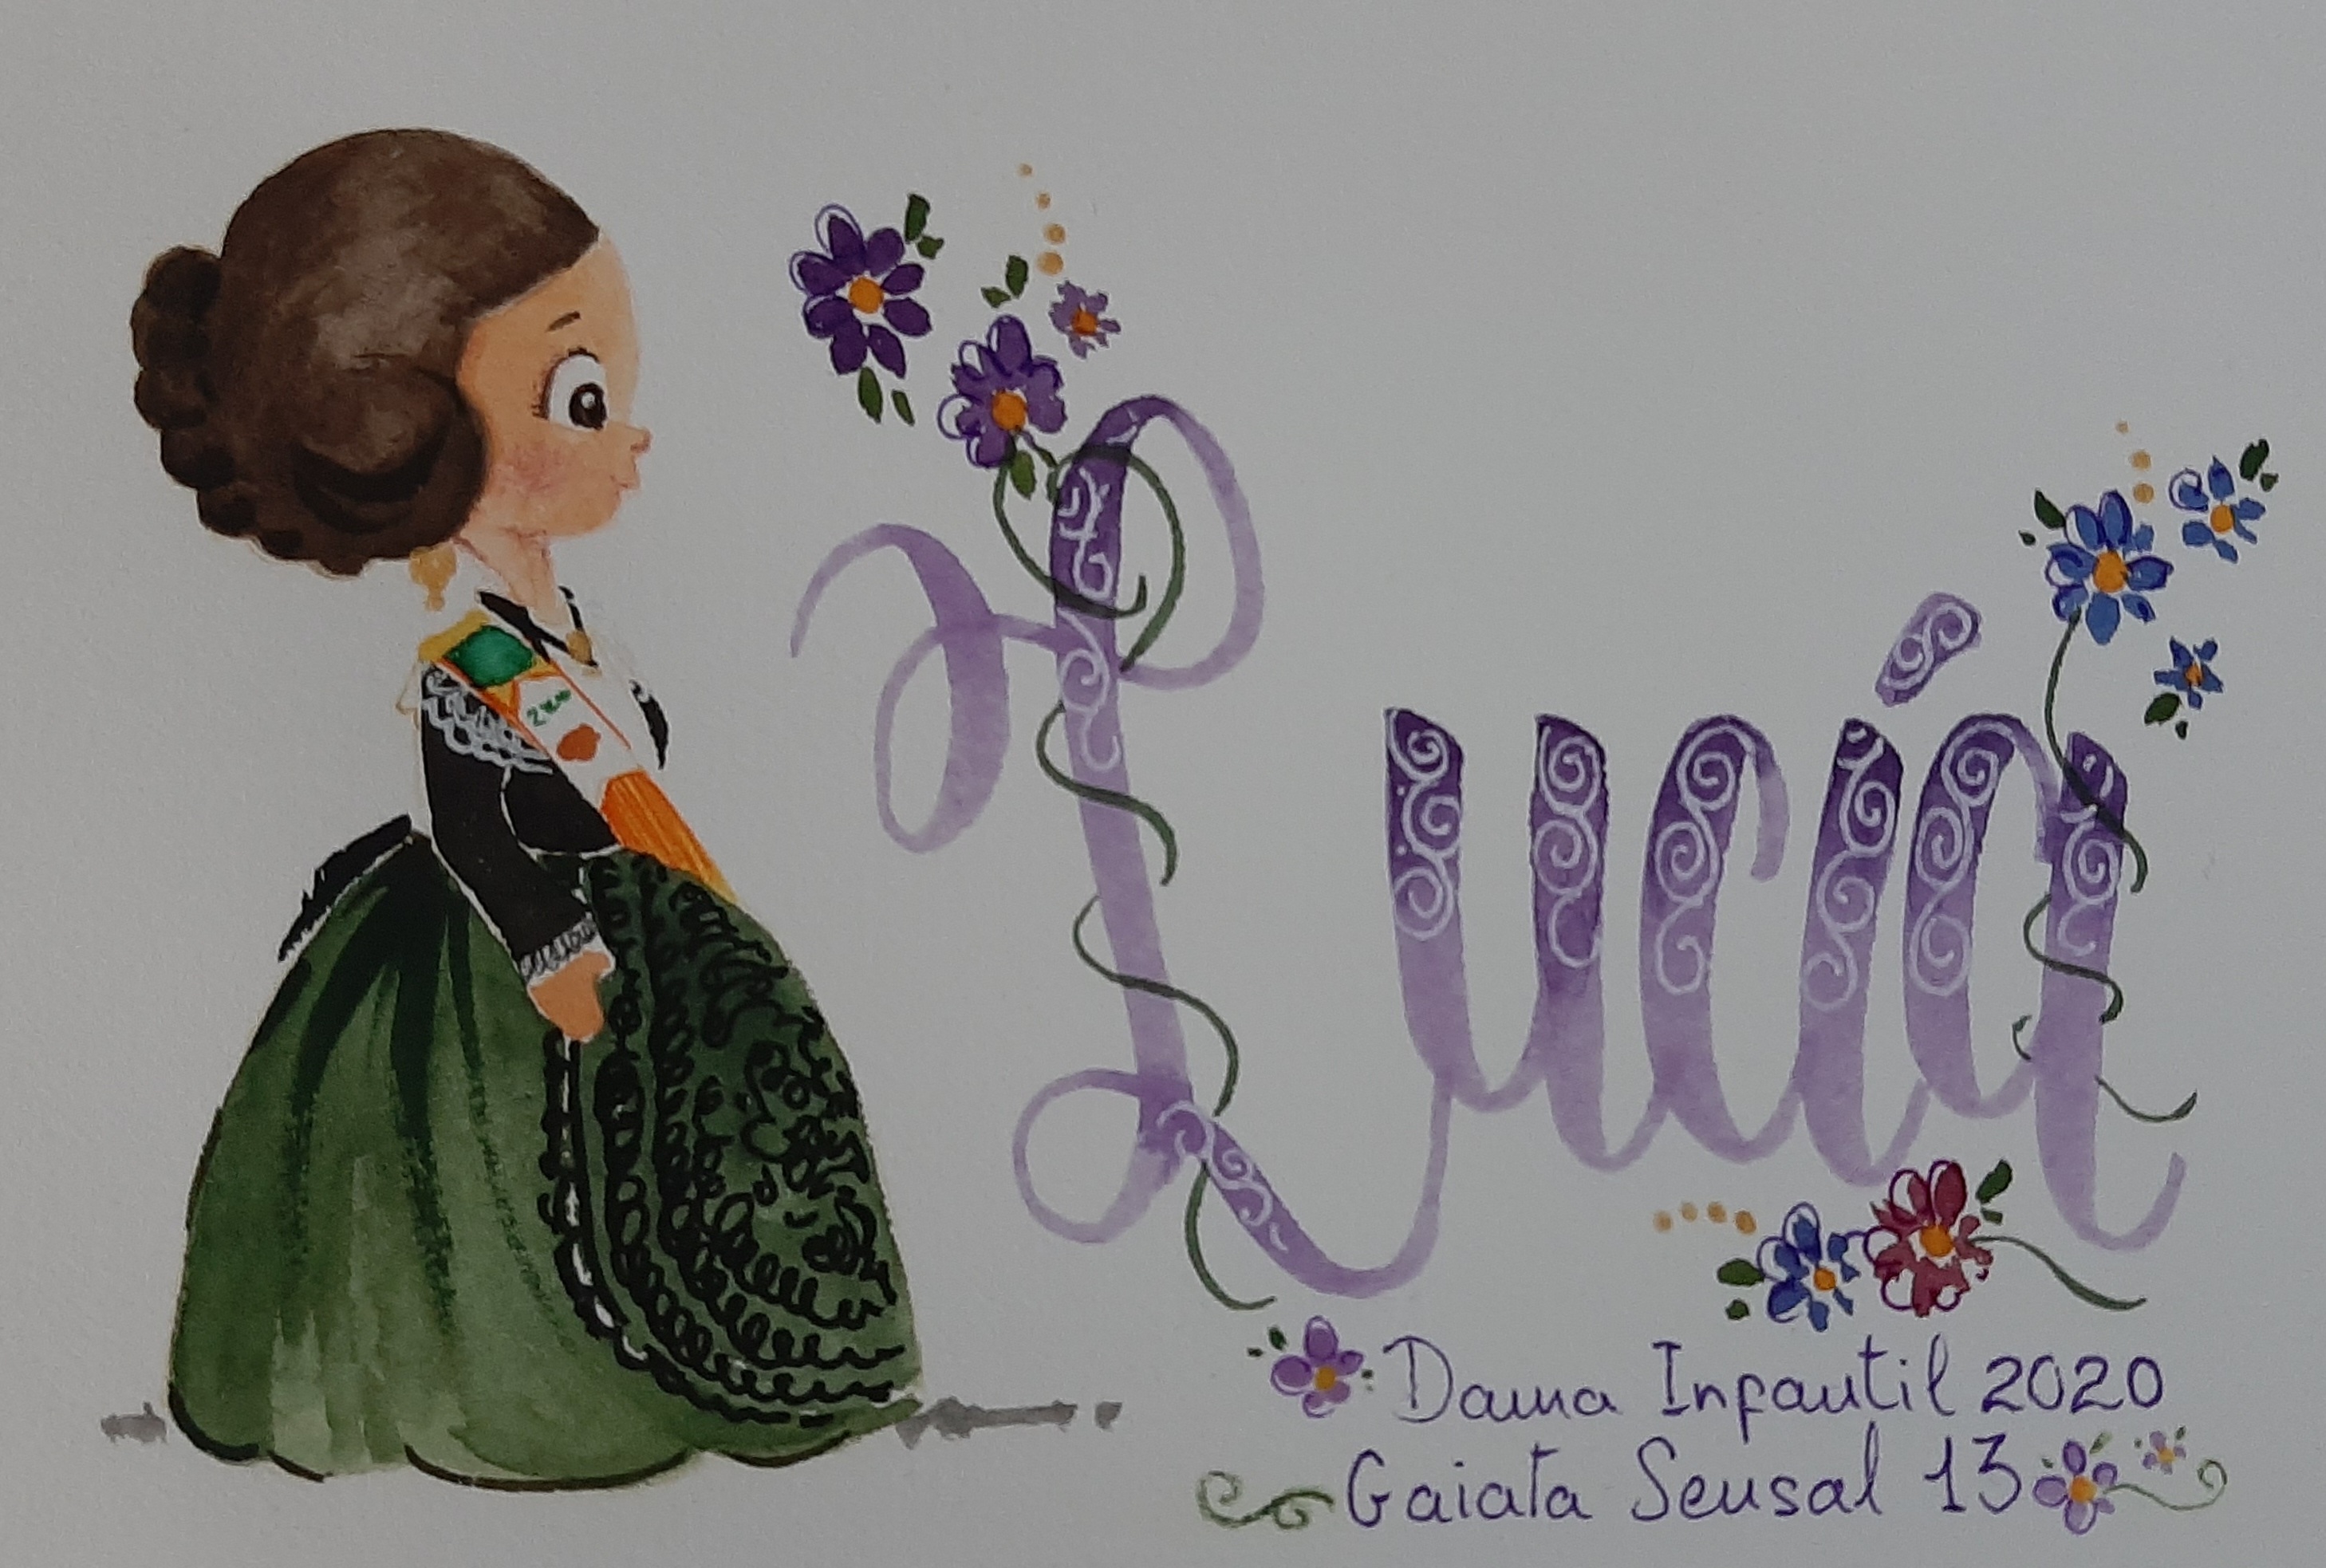 Lucía
Dama Infantil 2020
Gaiata Sensal 13